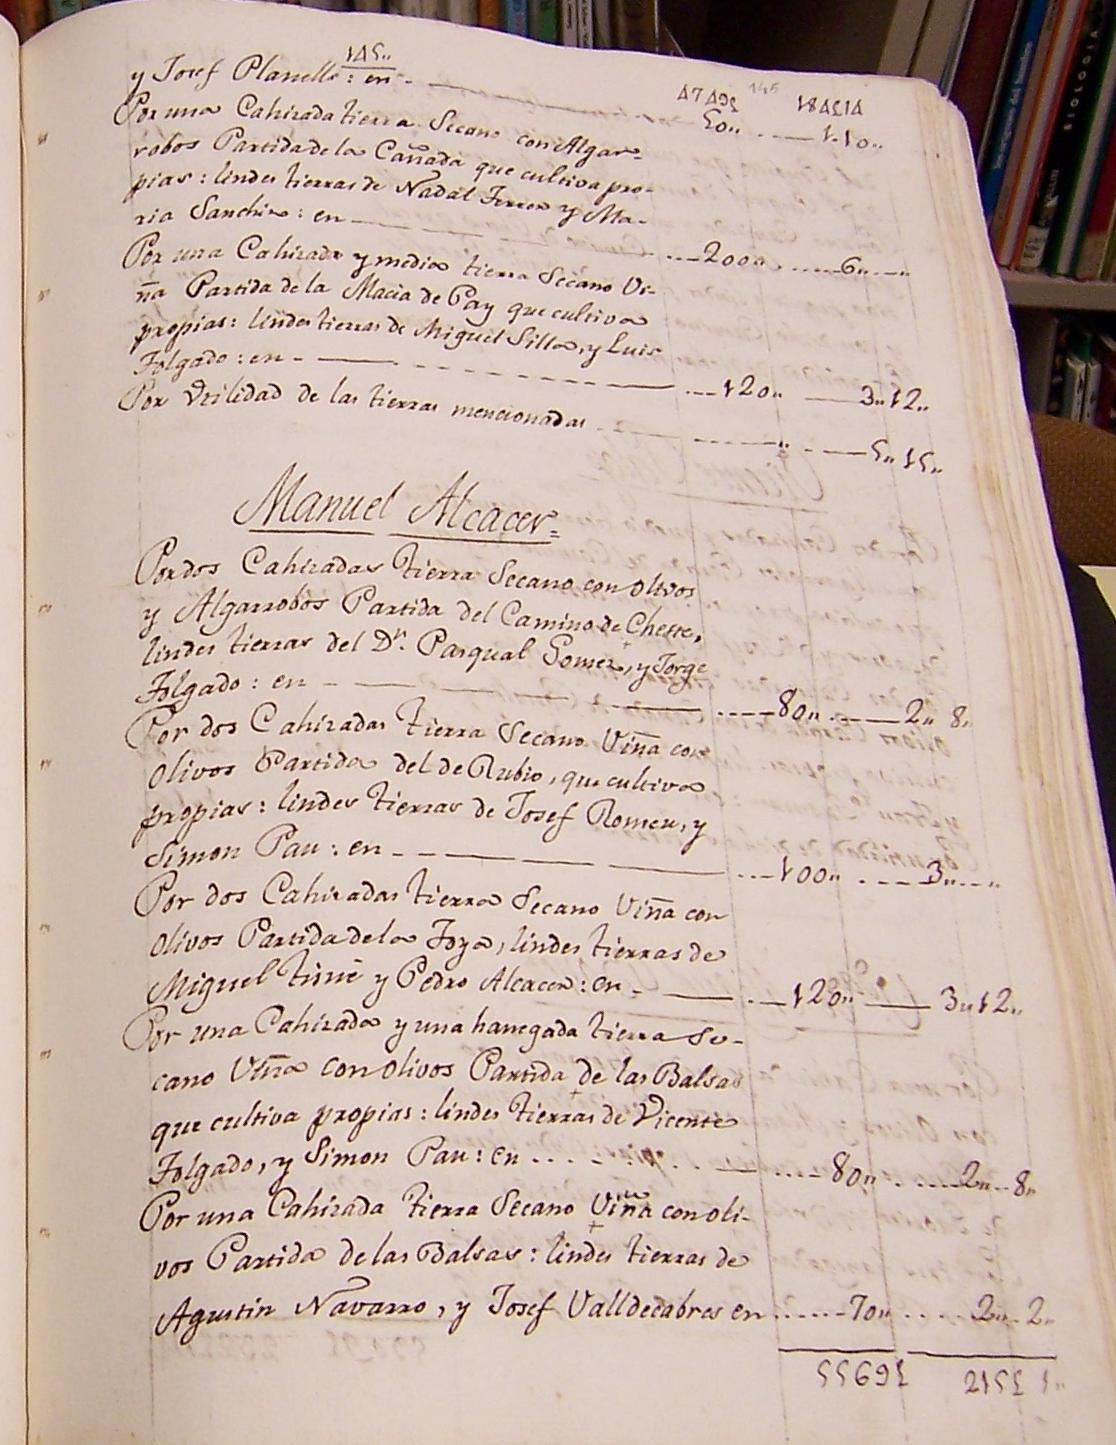 145„
y Josef Planells: en
Por una Cahizada tierra Secano con Algar= 50„ 1„10„
robos Partida de la Cañada que cultiva pro-
pias: lindes tierras de Nadal Ferrer y Ma-
ria Sanchis: en 200„ 6„ „
Por una Cahizada y media tierra Secano Vi-
ña Partida de la Macia de Pay que cultiva
propias: lindes tierras de Miguel Silla, y Luis
Folgado: en 120„ 3„12„
Por Vtilidad de las tierras mencionadas „ 5„15„
Manuel Alcacer=
Por dos Cahizadas tierra Secano con olivos
y Algarrobos Partida del Camino de Cheste,
lindes tierras del Dr. Pasqual Gomez, y Jorge
Folgado: en 80„ 2„8„
Por dos Cahizadas tierra Secano Viña con
olivos Partida del de Rubio, que cultiva
propias: lindes tierras de Josef Romeu, y
Simon Pau: en 100„ 3„ „
Por dos Cahizadas tierra Secano Viña con
olivos Partida de la Foya, lindes tierras de
Miguel y Pedro Alcacer: en 120„ 3„12„
Por una Cahizada y una hanegada tierra Se-
cano Viña con olivos Partida de las Balsas
que cultiva propias: lindes tierras de Vicente
Folgado, y Simon Pau: en 80„ 2„8„
Por una Cahizada tierra Secano Viña con oli-
vos Partida de las Balsas: lindes tierras de
Agustin Navarro, y Josef Valldecabres en 70„ 2„2„